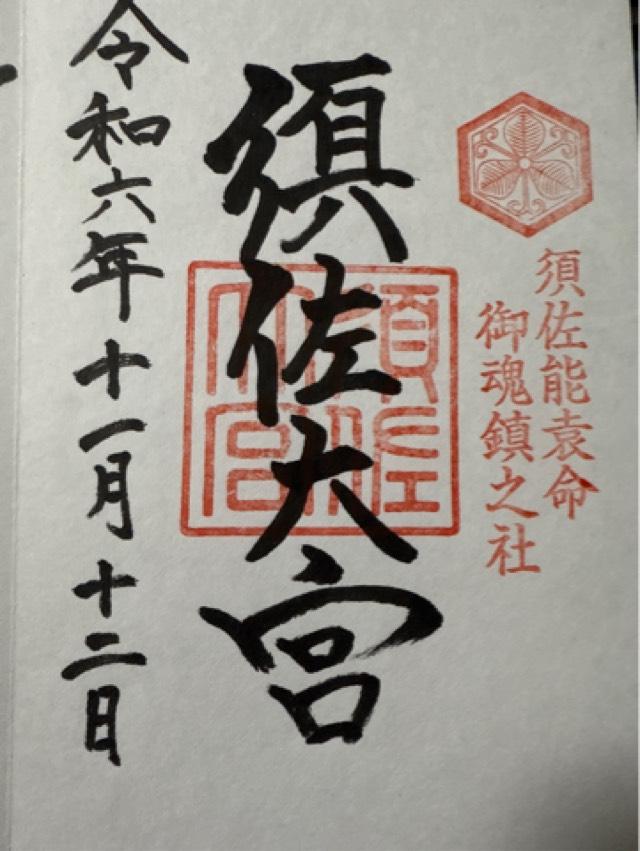 須佐能袁命
御魂鎮之社
須佐大宮
須佐
大宮
令和六年十一月十二日